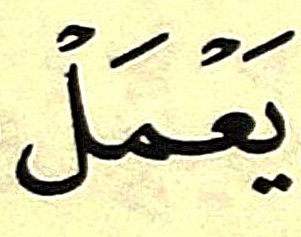 يَعْمَلْ